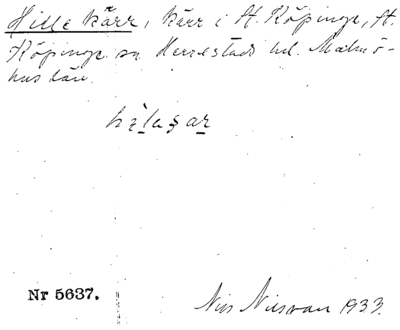 Hille kärr, kärr i St. Köpinge, St.
Köpinge sn Herrestads hd. Malmö-
hus län.
Nr 5637.
Nils Nilsson 1933.